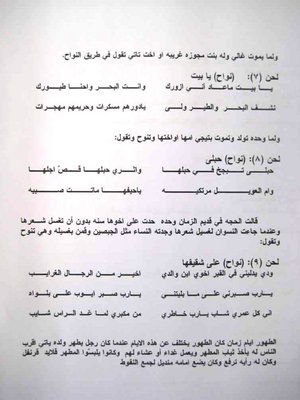 ولما يموت غالي وله بنت مجوزه غريبه او اخت تاتي تقول في طريق النواح.
لحن (٧): (نواح) يا بيت
يـا بيـت ماعـاد أتـي ازورك وانـت البحـر واحنـا طيـورك
نشـف البحـر والطيـر ولـى يادورهم مسكرات وحريمهم مهجرات
ولما وحده تولد وتموت بتيجي امها اواختها وتنوح وتقول:
لحن (٨): (نواح) حبلى
حبلـى تبيـجـخ في حبلهـا واثـري حبلهـا قـصّ اجلهـا
وام العويـل مرتكيـه ياحيفهـا ماتـت صبيـه
قالت الحجه في قديم الزمان وحده حدت على اخوها سنه بدون أن تغسل شعرها
وعندما جاءت النسوان لغسيل شعرها وجدته النساء مثل الجبصين وقمن بغسيله وهي تنوح
وتقول:
لحن (٩): (نواح) على شقيقها
ودي يدليني في القبر اخوي ابن والدي اخيـر مـن الرجـال الغرايـب
يـارب صبرني علـى مـا بليتنـي يـارب صبر ايوب على بلـواه
اني كل عمري شـاب خـاطري من مكبري لما غـد الـراس شـايب
الطهور ايام زمان كان الطهور يختلف عن هذه الايام عندما كان رجل يطهر ولده ياتي اقرب
الناس له يأخذ ثياب المطهر ويعمل غداء أو عشاء لهم وكانوا يلبسوا المطهر قلايد قرنفل
وكان له رايه ترفع وكان يضع امامه منديل لجمع النقوط